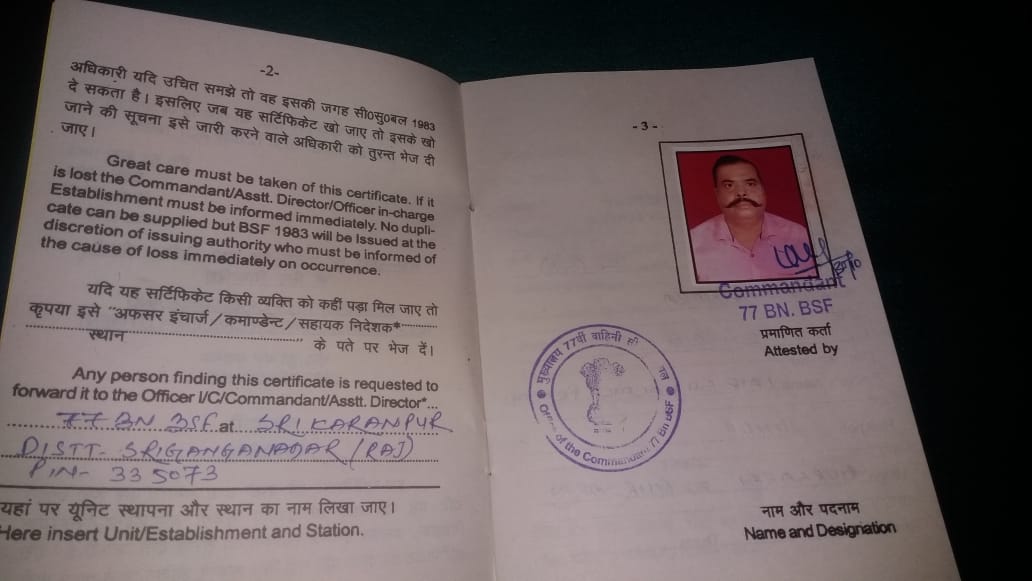 -2-
अधिकारी यदि उचित समझे तो वह इसकी जगह सी०सु०बल 1983
दे सकता है। इसलिए जब यह सर्टिफिकेट खो जाए तो इसके खो
जाने की सूचना इसे जारी करने वाले अधिकारी को तुरन्त भेज दी
जाए।
Great care must be taken of this certificate. If it
is lost the Commandant/Asstt. Director/Officer in-charge
Establishment must be informed immediately. No dupli-
cate can be supplied but BSF 1983 will be Issued at the
discretion of issuing authority who must be informed of
the cause of loss immediately on occurrence.
यदि यह सर्टिफिकेट किसी व्यक्ति को कहीं पड़ा मिल जाए तो
कृपया इसे "अफसर इंचार्ज/कमाण्डेन्ट/सहायक निदेशक*
स्थान" के पते पर भेज दें।
Any person finding this certificate is requested to
forward it to the Officer I/C/Commandant/Asstt. Director*...
77 BN BSF at SRI KARANPUR
DISTT- SRIGANGANAGAR (RAJ)
PIN- 335073
यहां पर यूनिट स्थापना और स्थान का नाम लिखा जाए।
Here insert Unit/Establishment and Station.
- 3 -
Commandant
77 BN. BSF
प्रमाणित कर्ता
Attested by
मुख्यालय 77वी वाहिनी सी बल
Office of the Commandant 77 Bn BSF
नाम और पदनाम
Name and Designation